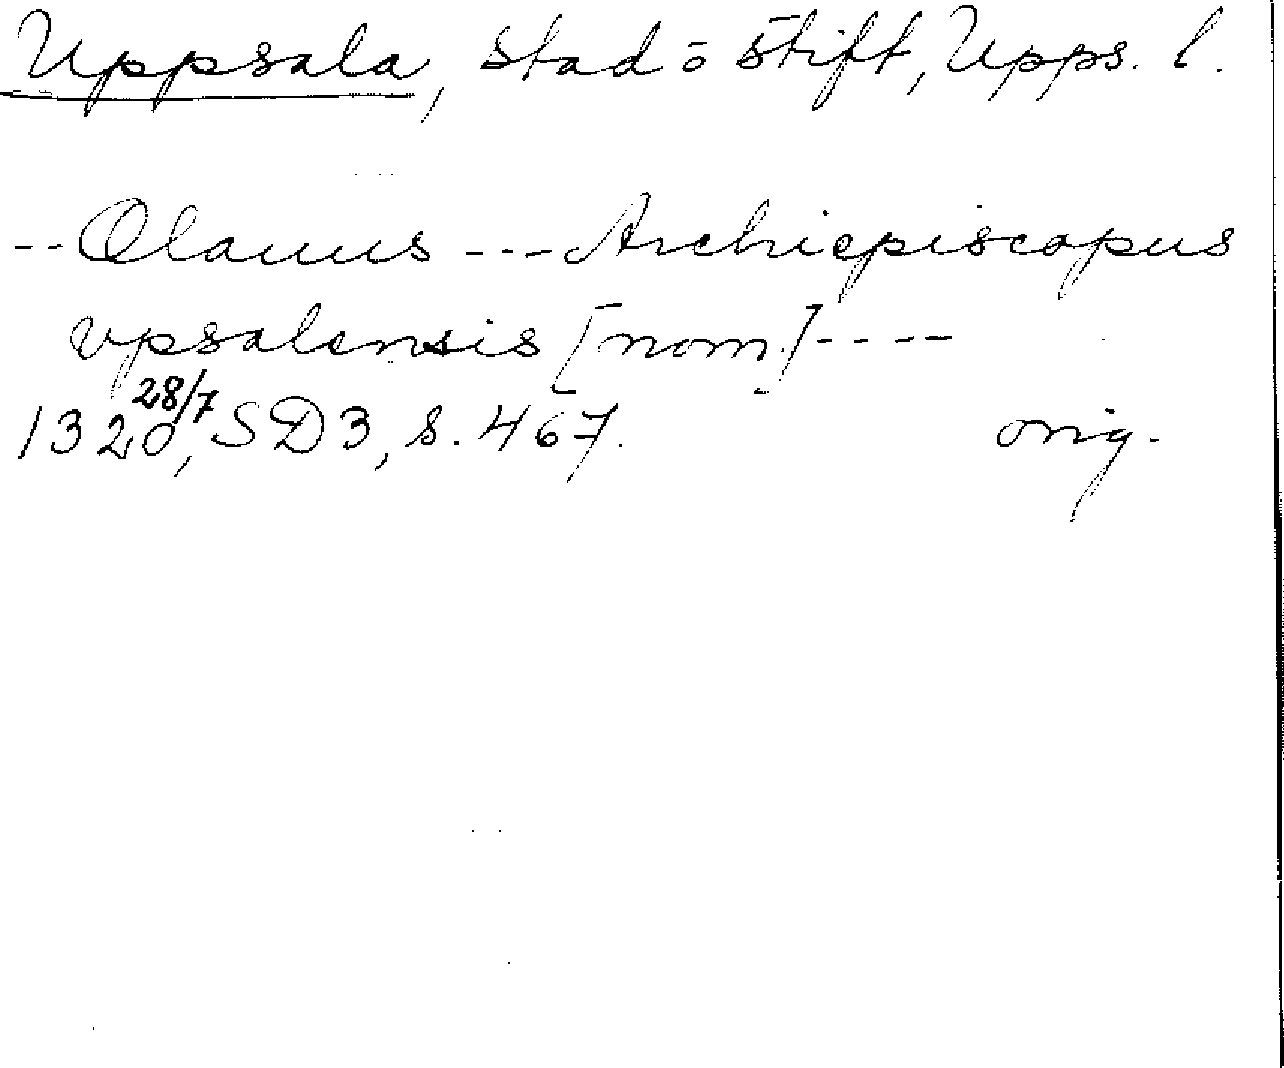 Uppsala, stad o stift, Upps. l.
-- Olauus --- Archiepiscopus
vpsalensis [nom.] ----
1320 28/7, SD3, s. 467. orig.